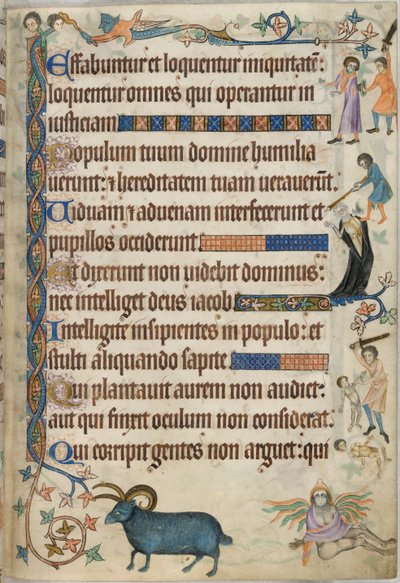 Effabuntur et loquentur iniquitatē:
loquentur omnes qui operantur in
iusticiam
Populum tuum domine humilia
uerunt: & hereditatem tuam uexauerūt.
Uiduam & aduenam interfecerunt et
pupillos occiderunt.
Et dixerunt non uidebit dominus:
nec intelliget deus iacob.
Intelligite insipientes in populo: et
stulti aliquando sapite
Qui plantauit aurem non audiet:
aut qui finxit oculum non considerat.
Qui corripit gentes non arguet: qui